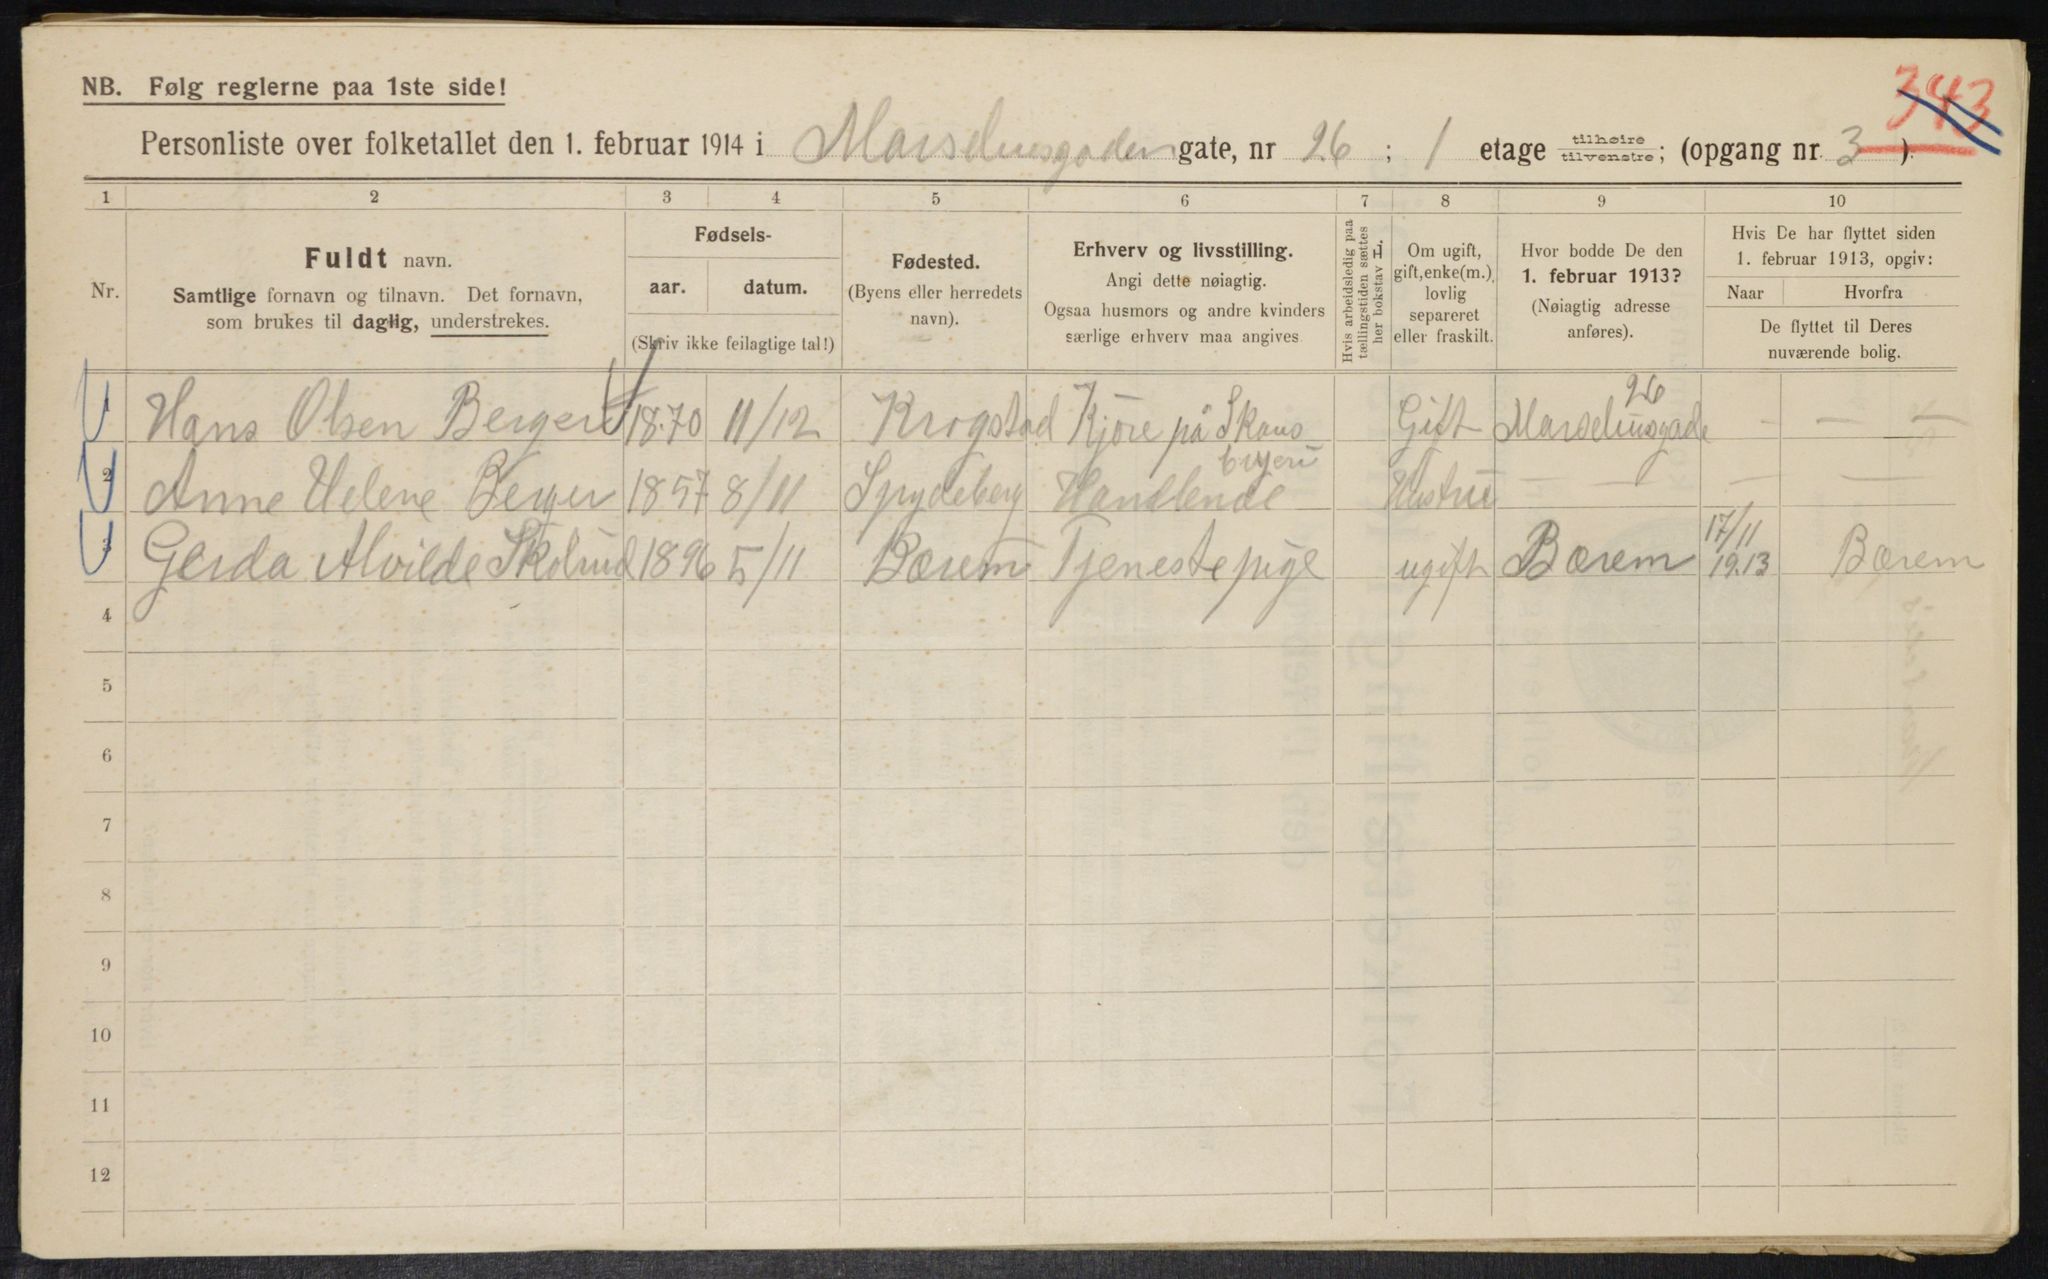 NB. Følg reglerne paa 1ste side!
343
Personliste over folketallet den 1. februar 1914 i Marseliusgaden gate, nr 26 ; 1 etage tilhøire / tilvenstre; (opgang nr. 3 ).
1 2 3 4 5 6 7 8 9 10
Nr.
Fuldt navn.
Samtlige fornavn og tilnavn. Det fornavn,
som brukes til daglig, understrekes.
Fødsels-
aar. datum.
(Skriv ikke feilagtige tal!)
Fødested.
(Byens eller herredets
navn).
Erhverv og livsstilling.
Angi dette nøiagtig.
Ogsaa husmors og andre kvinders
særlige erhverv maa angives.
Hvis arbeidsledig paa
tællingstiden sættes
her bokstav L.
Om ugift,
gift, enke(m.),
lovlig
separeret
eller fraskilt.
Hvor bodde De den
1. februar 1913?
(Nøiagtig adresse
anføres).
Hvis De har flyttet siden
1. februar 1913, opgiv:
Naar Hvorfra
De flyttet til Deres
nuværende bolig.
1 Hans Olsen Berger 1870 11/12 Krogstad Kjøre på Skous bryeri Gift Marseliusgade 26 - - -
2 Anne Helene Berger 1857 8/11 Spydeberg Handlende Hustru - - - - -
3 Gerda Alvilde 1896 5/11 Bærem Tjenestepige ugift Bærem 17/11 19.13 Bærem
4
5
6
7
8
9
10
11
12